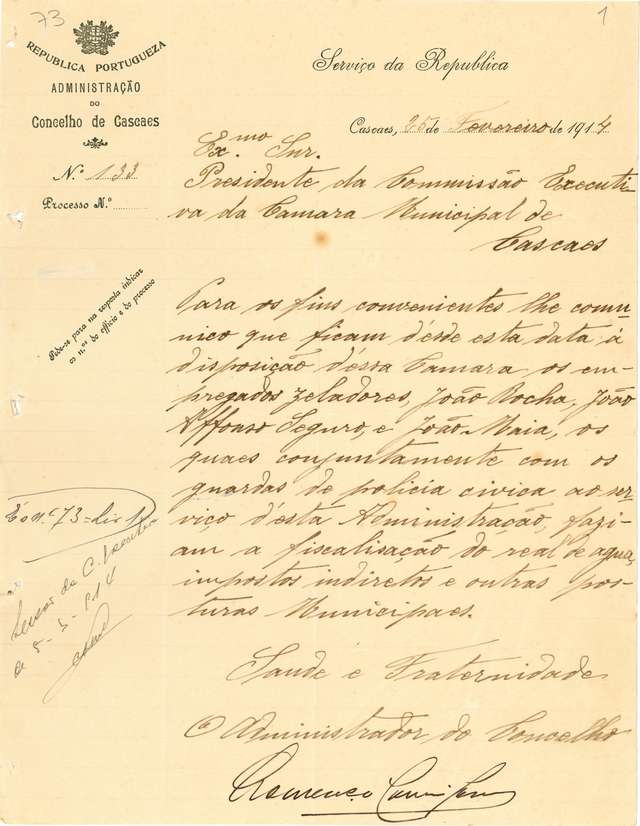 73
1
REPUBLICA PORTUGUEZA
ADMINISTRAÇÃO
DO
Concelho de Cascaes
N.º 133
Processo N.º
Pede-se para na resposta indicar
os n.ºs do officio e do processo
Serviço da Republica
Cascaes, 25 de Fevereiro de 1914
Ex.mo Snr.
Presidente da Commissão Executi
va da Camara Municipal de
Cascaes
Para os fins convenientes lhe comu
nico que ficam désde esta data á
disposição d'éssa Camara os em
pregados zeladores, João Rocha, João
Affonso Seguro, e João Maia, os
quaes conjuntamente com os
guardas de policia civica ao ser
viço d'ésta Administração, fazi
am a fiscalisação do real de agua,
impostos indiretos e outras pos-
turas Municipaes.
Saude e Fraternidade
O Administrador do Concelho
Lourenço
E o n.º 73 = Liv 1
de C.
5-3-914